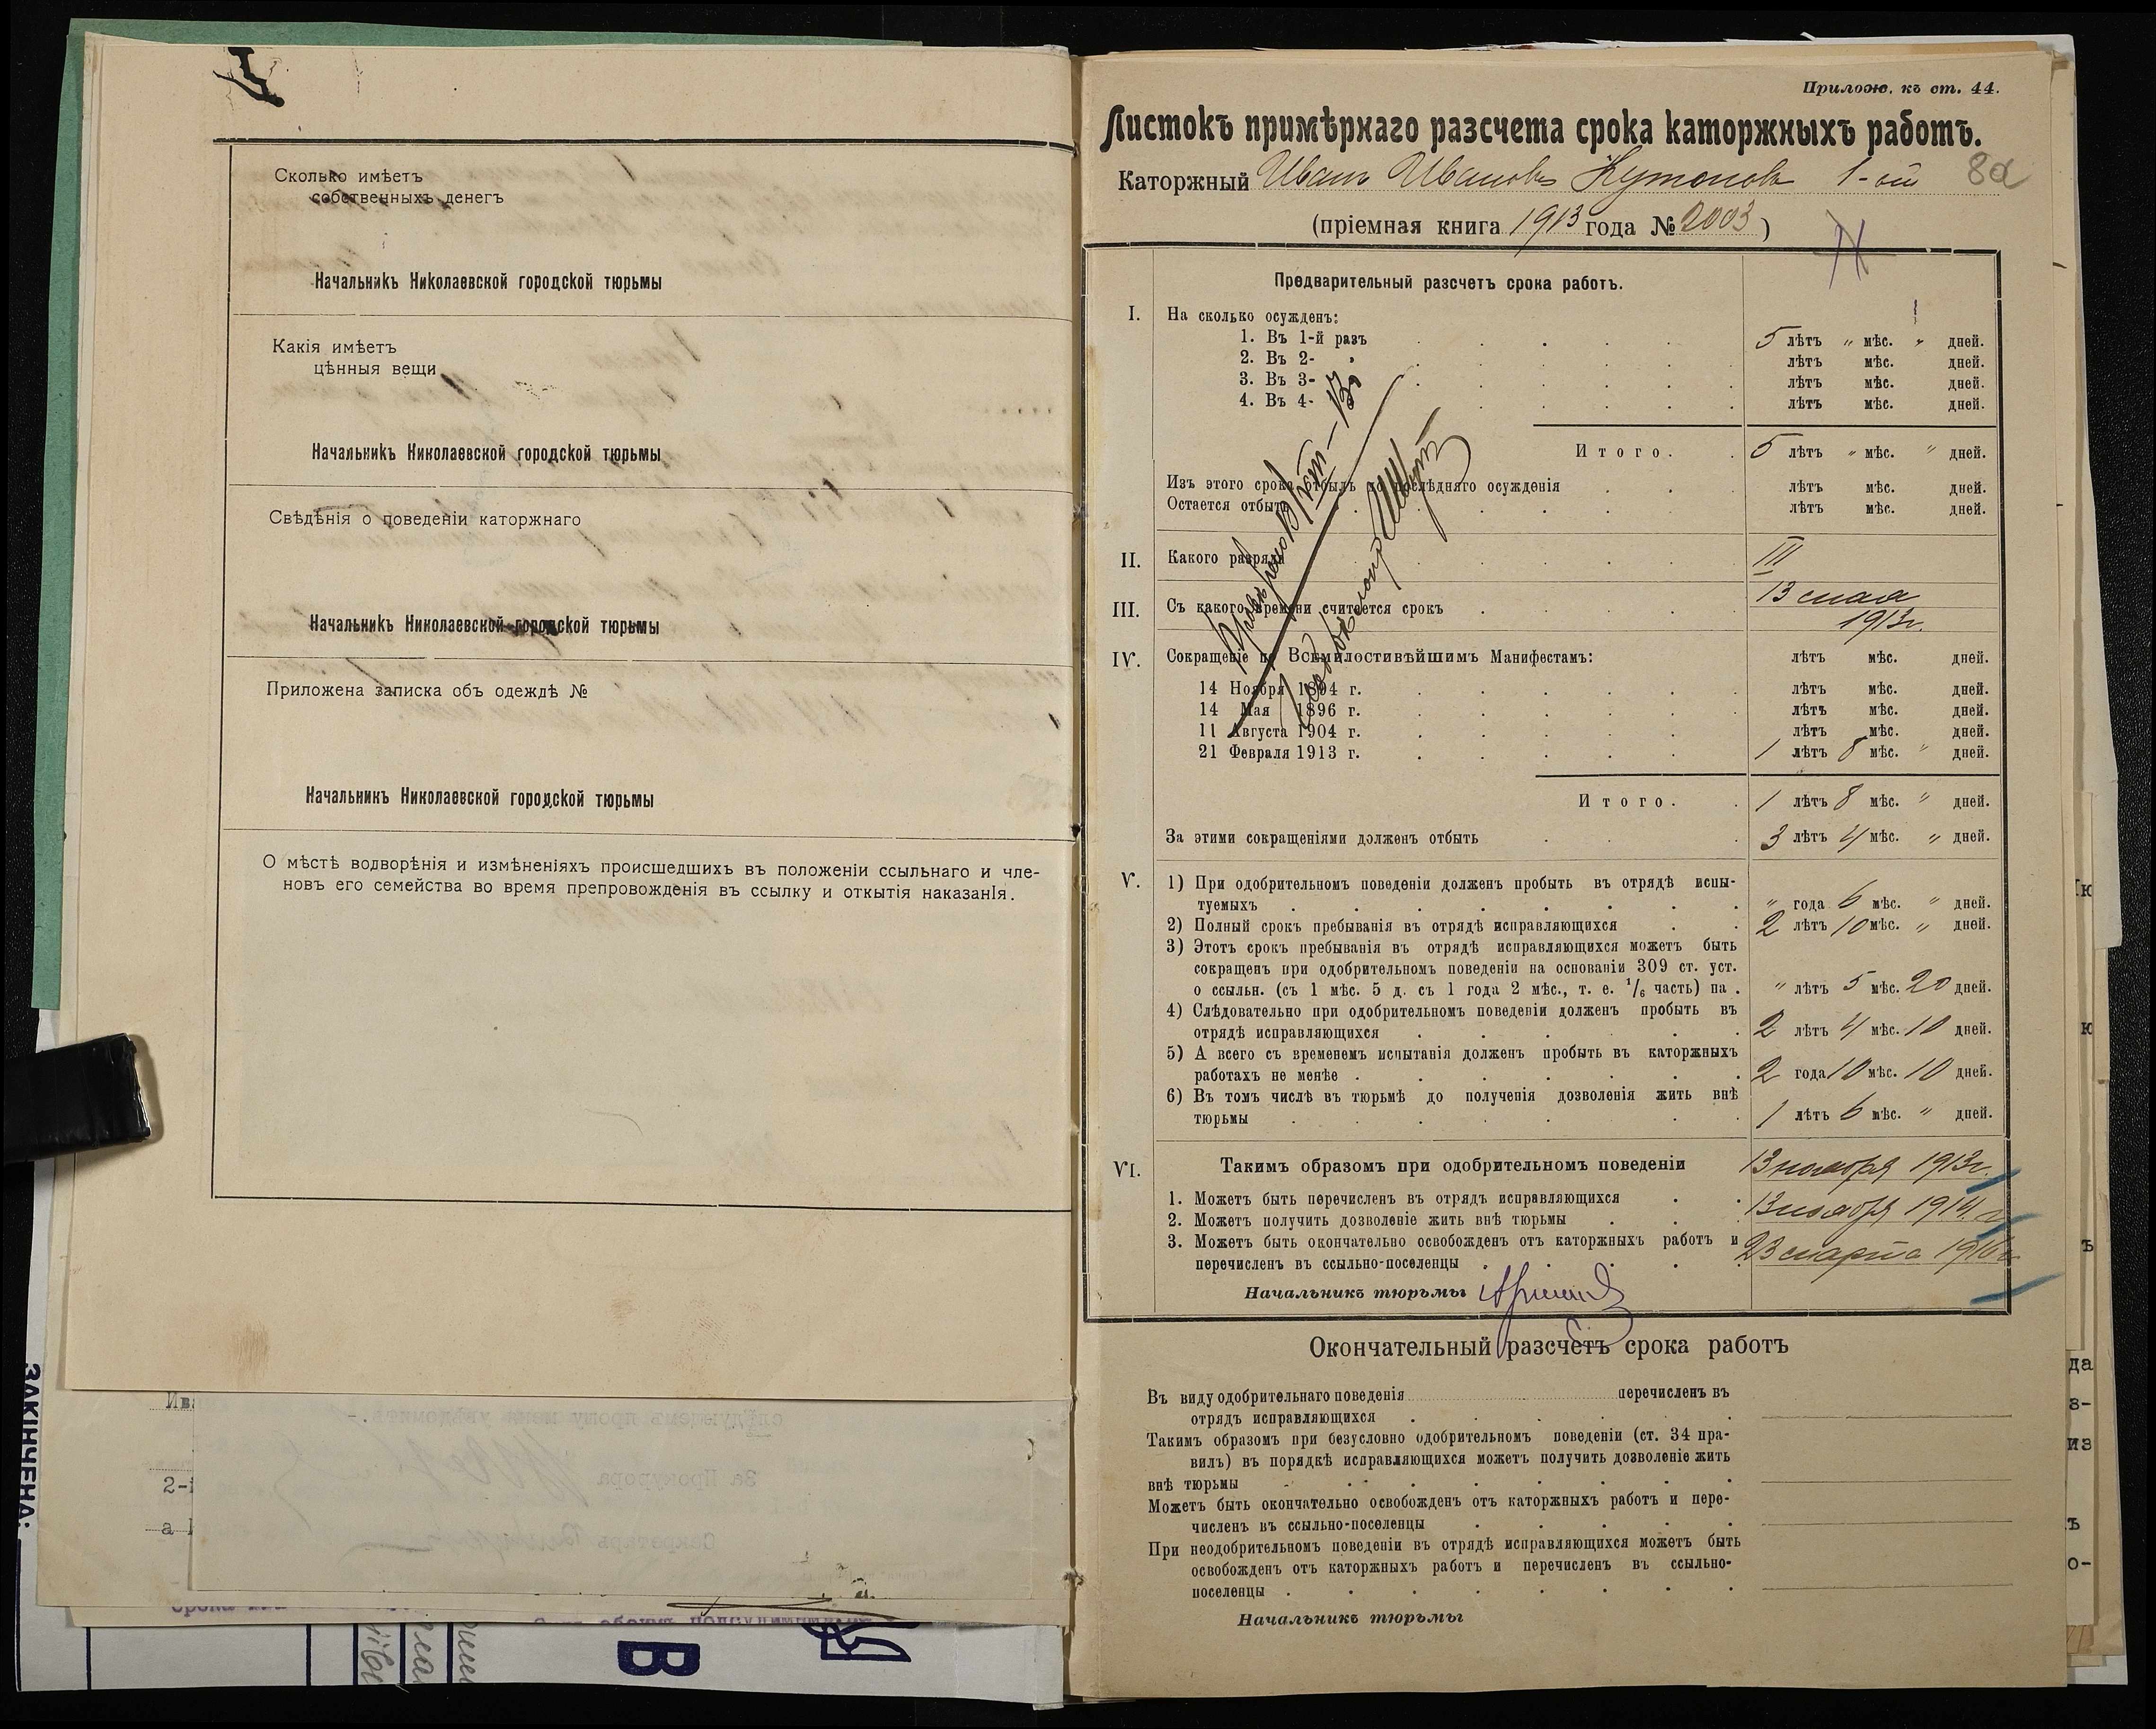 Сколько имѣетъ
собственныхъ денегъ
Начальникъ Николаевской городской тюрьмы
Какія имѣетъ
цѣнныя вещи
Начальникъ Николаевской городской тюрьмы
Свѣдѣнія о поведеніи каторжнаго
Начальникъ Николаевской городской тюрьмы
Приложена записка объ одеждѣ №
Начальникъ Николаевской городской тюрьмы
О мѣстѣ водворѣнія и измѣненіяхъ происшедшихъ въ положеніи ссыльнаго и чле-
новъ его семейства во время препровожденія въ ссылку и открытія наказанІя.
Прилож. къ ст. 44.
Листокъ примѣрнаго разсчета срока каторжныхъ работъ.
Каторжный Иванъ Ивановъ 1-ый 8а
(пріемная книга 1913 года № 2003)
Предварительный разсчетъ срока работъ.
I. На сколько осужденъ:
1. Въ 1-й разъ 5 лѣтъ " мѣс. " дней.
2. Въ 2- " лѣтъ мѣс. дней.
3. Въ 3- лѣтъ мѣс. дней.
4. Въ 4- лѣтъ мѣс. дней.
Итого. 5 лѣтъ " мѣс. " дней.
Изъ этого срока отбылъ до послѣдняго осужденія лѣтъ мѣс. дней.
Остается отбыть лѣтъ мѣс. дней.
II. Какого разряда III
III. Съ какого времени считается срокъ 13 мая
1913 г.
IV. Сокращеніе по Всемилостивѣйшимъ Манифестамъ: лѣтъ мѣс. дней.
14 Ноября 1894 г. лѣтъ мѣс. дней.
14 Мая 1896 г. лѣтъ мѣс. дней.
11 Августа 1904 г. лѣтъ мѣс. дней.
21 Февраля 1913 г. 1 лѣтъ 8 мѣс. " дней.
Итого. 1 лѣтъ 8 мѣс. " дней.
За этими сокращеніями долженъ отбыть 3 лѣтъ 4 мѣс. " дней.
V. 1) При одобрительномъ поведеніи долженъ пробыть въ отрядѣ испы-
туемыхъ " года 6 мѣс. " дней.
2) Полный срокъ пребыванія въ отрядѣ исправляющихся 2 лѣтъ 10 мѣс. " дней.
3) Этотъ срокъ пребыванія въ отрядѣ исправляющихся можетъ быть
сокращенъ при одобрительномъ поведеніи на основаніи 309 ст. уст.
о ссыльн. (съ 1 мѣс. 5 д. съ 1 года 2 мѣс., т. е. 1/6 часть) на . " лѣтъ 5 мѣс. 20 дней.
4) Слѣдовательно при одобрительномъ поведеніи долженъ пробыть въ
отрядѣ исправляющихся 2 лѣтъ 4 мѣс. 10 дней.
5) А всего съ временемъ испытанія долженъ пробыть въ каторжныхъ
работахъ не менѣе 2 года 10 мѣс. 10 дней.
6) Въ томъ числѣ въ тюрьмѣ до полученія дозволенія жить внѣ
тюрьмы 1 лѣтъ 6 мѣс. " дней.
VI. Такимъ образомъ при одобрительномъ поведеніи 13 ноября 1913 г.
1. Можетъ быть перечисленъ въ отрядъ исправляющихся
2. Можетъ получить дозволеніе жить внѣ тюрьмы 13 ноября 1914 г.
3. Можетъ быть окончательно освобожденъ отъ каторжныхъ работъ и 23 марта 1916 г.
перечисленъ въ ссыльно-поселенцы
Начальникъ тюрьмы
Окончательный разсчетъ срока работъ
Въ виду одобрительнаго поведенія перечисленъ въ
отрядъ исправляющихся
Такимъ образомъ при безусловно одобрительномъ поведеніи (ст. 34 пра-
вилъ) въ порядкѣ исправляющихся можетъ получить дозволеніе жить
внѣ тюрьмы
Можетъ быть окончательно освобожденъ отъ каторжныхъ работъ и пере-
численъ въ ссыльно-поселенцы
При неодобрительномъ поведеніи въ отрядѣ исправляющихся можетъ быть
освобожденъ отъ каторжныхъ работъ и перечисленъ въ ссыльно-
поселенцы
Начальникъ тюрьмы
ЗАКІНЧЕНА:
За Прокурора
Секретарь
В